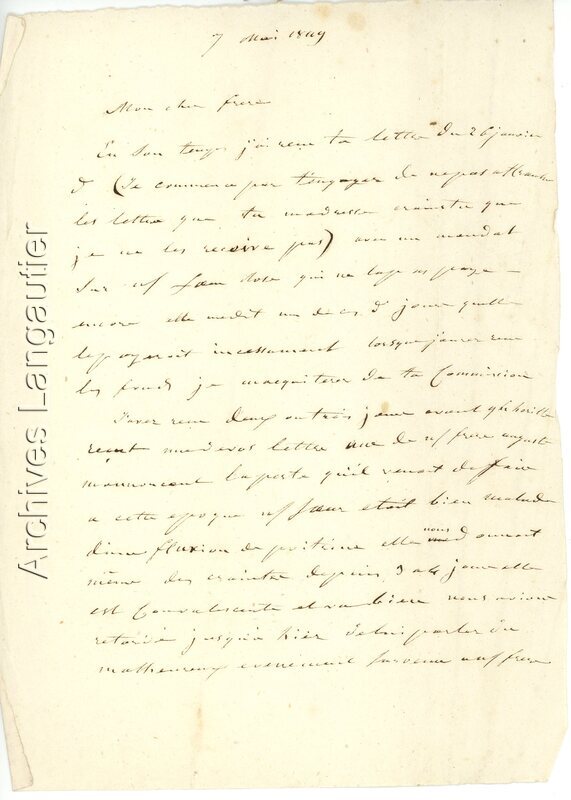 7 Mai 1809
Mon cher frere
En son temps j'ai recu ta lettre du 26 janvier
& (Je commence par t'engager de ne pas affranchir
les lettre que tu madresse crainte que
je ne les recoive pas) avec un mandat
sur nf soeur qui ne la pas paye
encore elle medit un de ces d jours quelle
lepayeroit incessament lorsque j'aurez recu
les fonds je maquiterer de ta Commission
J'avez recu deux ou trois jour avant
recut une de vos lettre une de nf frere auguste
mannoncant laperte qu'il venoit de faire
a cette epoque nf soeur etoit bien malade
d'une fluxion de poitrine elle nous donnoit
même des craintes depuis 3 a 4 jour elle
est Convalescente et va bien nous avions
retardé jusqu'a hier delui parler du
malheureux evenement survenu a nf frere
Archives Langautier